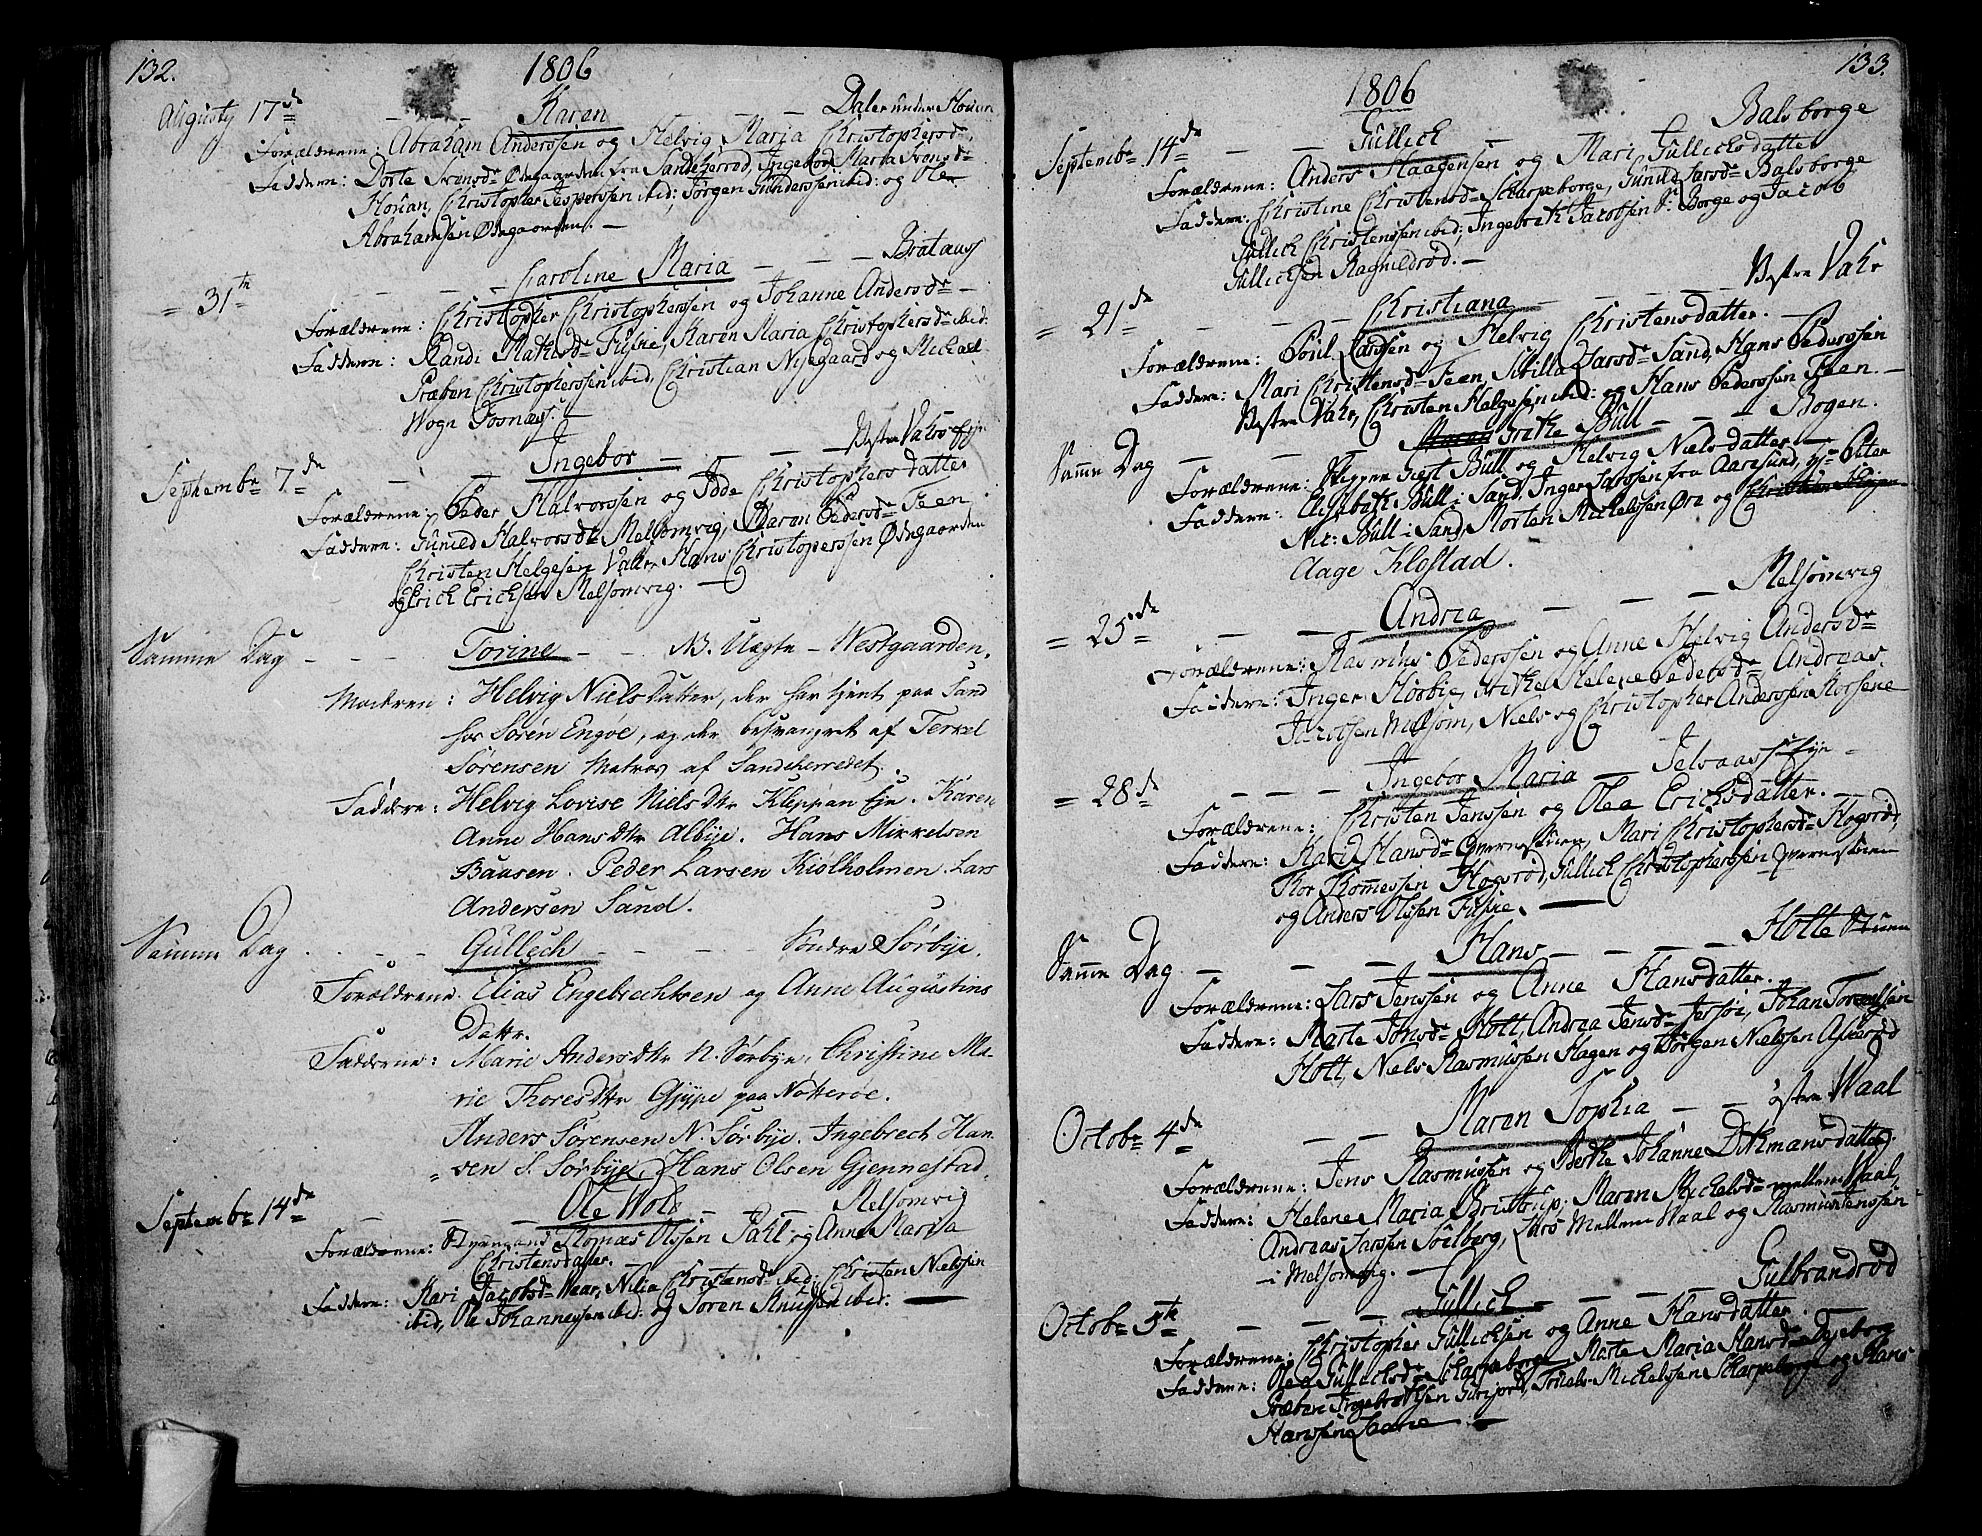 132.
1806
Augusty 17de - - - Karen - - Dalen under Hovian
Forældrene: Abraham Anderssen og Helvig Maria Christophersdr.
Faddere: Dorte Svensdr Ødegaarden fra Sandeherred, Ingebor Maria Svensdr
Hovian, Christopher Jesperssen ibid: Jørgen Gunderssen ibid: og Ole
Abrahamsen Ødegaarden. -
= 31te - - - Caroline Maria - - - Brataas
Forældrene: Christopher Christopherssen og Johanne Andersdr -
Faddere: Randi Mathisdr Furue, Karen Maria Christophersdr ibid:
Præben Christopherssen ibid, Christian Nyegaard og Michael
Wogn Fosnæs. -
Septembr 7de - - Ingebor - - - Vestre Vakrs Eje
Forældrene: Peder Halvorssen og Odde Christophersdatter
Faddere: Gunild Halvorsdr Melsomvig, Maren Pedersdr Feen
Christen Helgesen Vakr, Hans Christophersen Ødegaarden
og Erich Erichsen Melsomvig. -
Samme Dag - - - Torine - - NB. Uægte - Westgaarden.
Moderen: Helvig Niels Datter, der har tjent paa Sand
hos Sören Engöe, og der besvangret af Terkel
Sörensen Matros af Sandeherredet.
Faddere: Helvig Lovise Niels Dttr Kleppan Eje. Karen
Anne Hans Dttr Albye. Hans Mikkelsen
Bausen. Peder Larsen Kiölholmen. Lars
Andersen Sand.
Samme Dag . - - - Gullech - - - - Söndre Sörbye.
Forældrene. Elias Engebrechtsen og Anne Augustins
Dattr.
Faddrene: Marie Anders Dttr N. Sörbye, Christine Ma-
rie Thores Dttr Gjype paa Nötteröe.
Anders Sörensen N. Sörbye. Ingebrech Han
= sen S. Sörbye, Hans Olsen Gjennestad.
Septembr 14de - - - Ole Wold - - - Melsomvig
Forældrene: Thomas Olssen Dahl og Anne Maria
Christensdatter. -
Faddere: Kari Jacobsdr Waar, Nilia Christensdr ibid: Christen Nielssen
ibid, Ole Johannessen ibid: og Søren Knudsen ibid. -
133.
1806
Septembr 14de - - - Gullich - - Balsborge
Forældrene: Anders Haagensen og Mari Gullichsdatter
Faddere: Christine Christensdr Skarpeborge, Gunild Larsdr Balsborge
Gullich Christenssen ibid; Ingebreth Jacobsen S: Borge og Jacob
Gullichsen Ragnildrød. -
= 21de - - - Christiana - - - - Vestre Vakr
Forældrene: Poul Larssen og Helvig Christensdatter. -
Faddere: Mari Christensdr Feen, Sibilla Larsdr Sand, Hans Pederssen
Vestre Vakr, Christen Helgesen ibid: og Hans Pederssen Feen. -
Samme Dag - - - Maren Grethe Bull - - - Bogen.
Forældrene: Skipper Giest Bull og Helvig Nielsdatter -
Faddere: Elisabeth Bull i Sand, Inger Jacobsen fra Aarøsund, Peter
Nic: Bull i Sand, Morten Michelssen Øra og
Aage Klostad.
= 25de - - - Andrea - - - Melsomvig
Forældrene: Rasmus Pederssen og Anne Helvig Andersdr
Faddere: Inger Horbie, Grethe Helene Pedersdr, Andreas
Jacobsen Melsom, Niels og Christopher Anderssen Horsene
= 28de - - - - Ingebor Maria - Jelvaass Eje -
Forældrene: Christen Jenssen og Olea Erichsdatter. -
Faddere: Kari Hansdr Qvernestuen, Mari Christophersdr Hogsrød,
Thor Thomessen Hogsrød, Gullich Christopherssen Qvernestuen
og Anders Olssen Furue. -
Samme Dag - - - Hans - - - - Holte Stuen
Forældrene: Lars Jenssen og Anne Hansdatter.
Faddere: Marte Jensdr Holt, Andrea Jensdr Jersøi, Johan
Holt, Niels Rasmussen Hagen og Jørgen Nielssen Askerød
Octobr 4de - - - Maren Sophia - - østre Waal
Forældrene: Jens Rasmussen og Berthe Johanne Dithmansdatter.
Faddere: Helene Maria Bruttrup, Maren Michelsdr mellem Waal,
Andreas Larssen Soelberg, Lars Mellem Waal og Rasmus Jenssen
- i Melsomvig. -
Octobr 5te - - - Gullich - - - - Gulbrandrød
Forældrene: Christopher Gullichsen og Anne Hansdatter.
Faddere: Olea Gullichsdr Skarpeborge, Marte Maria Hansdr Dyeborg
Præben Ingebrethsen Gurijord, Truels Michelssen Skarpeborge og Hans
Hanssen